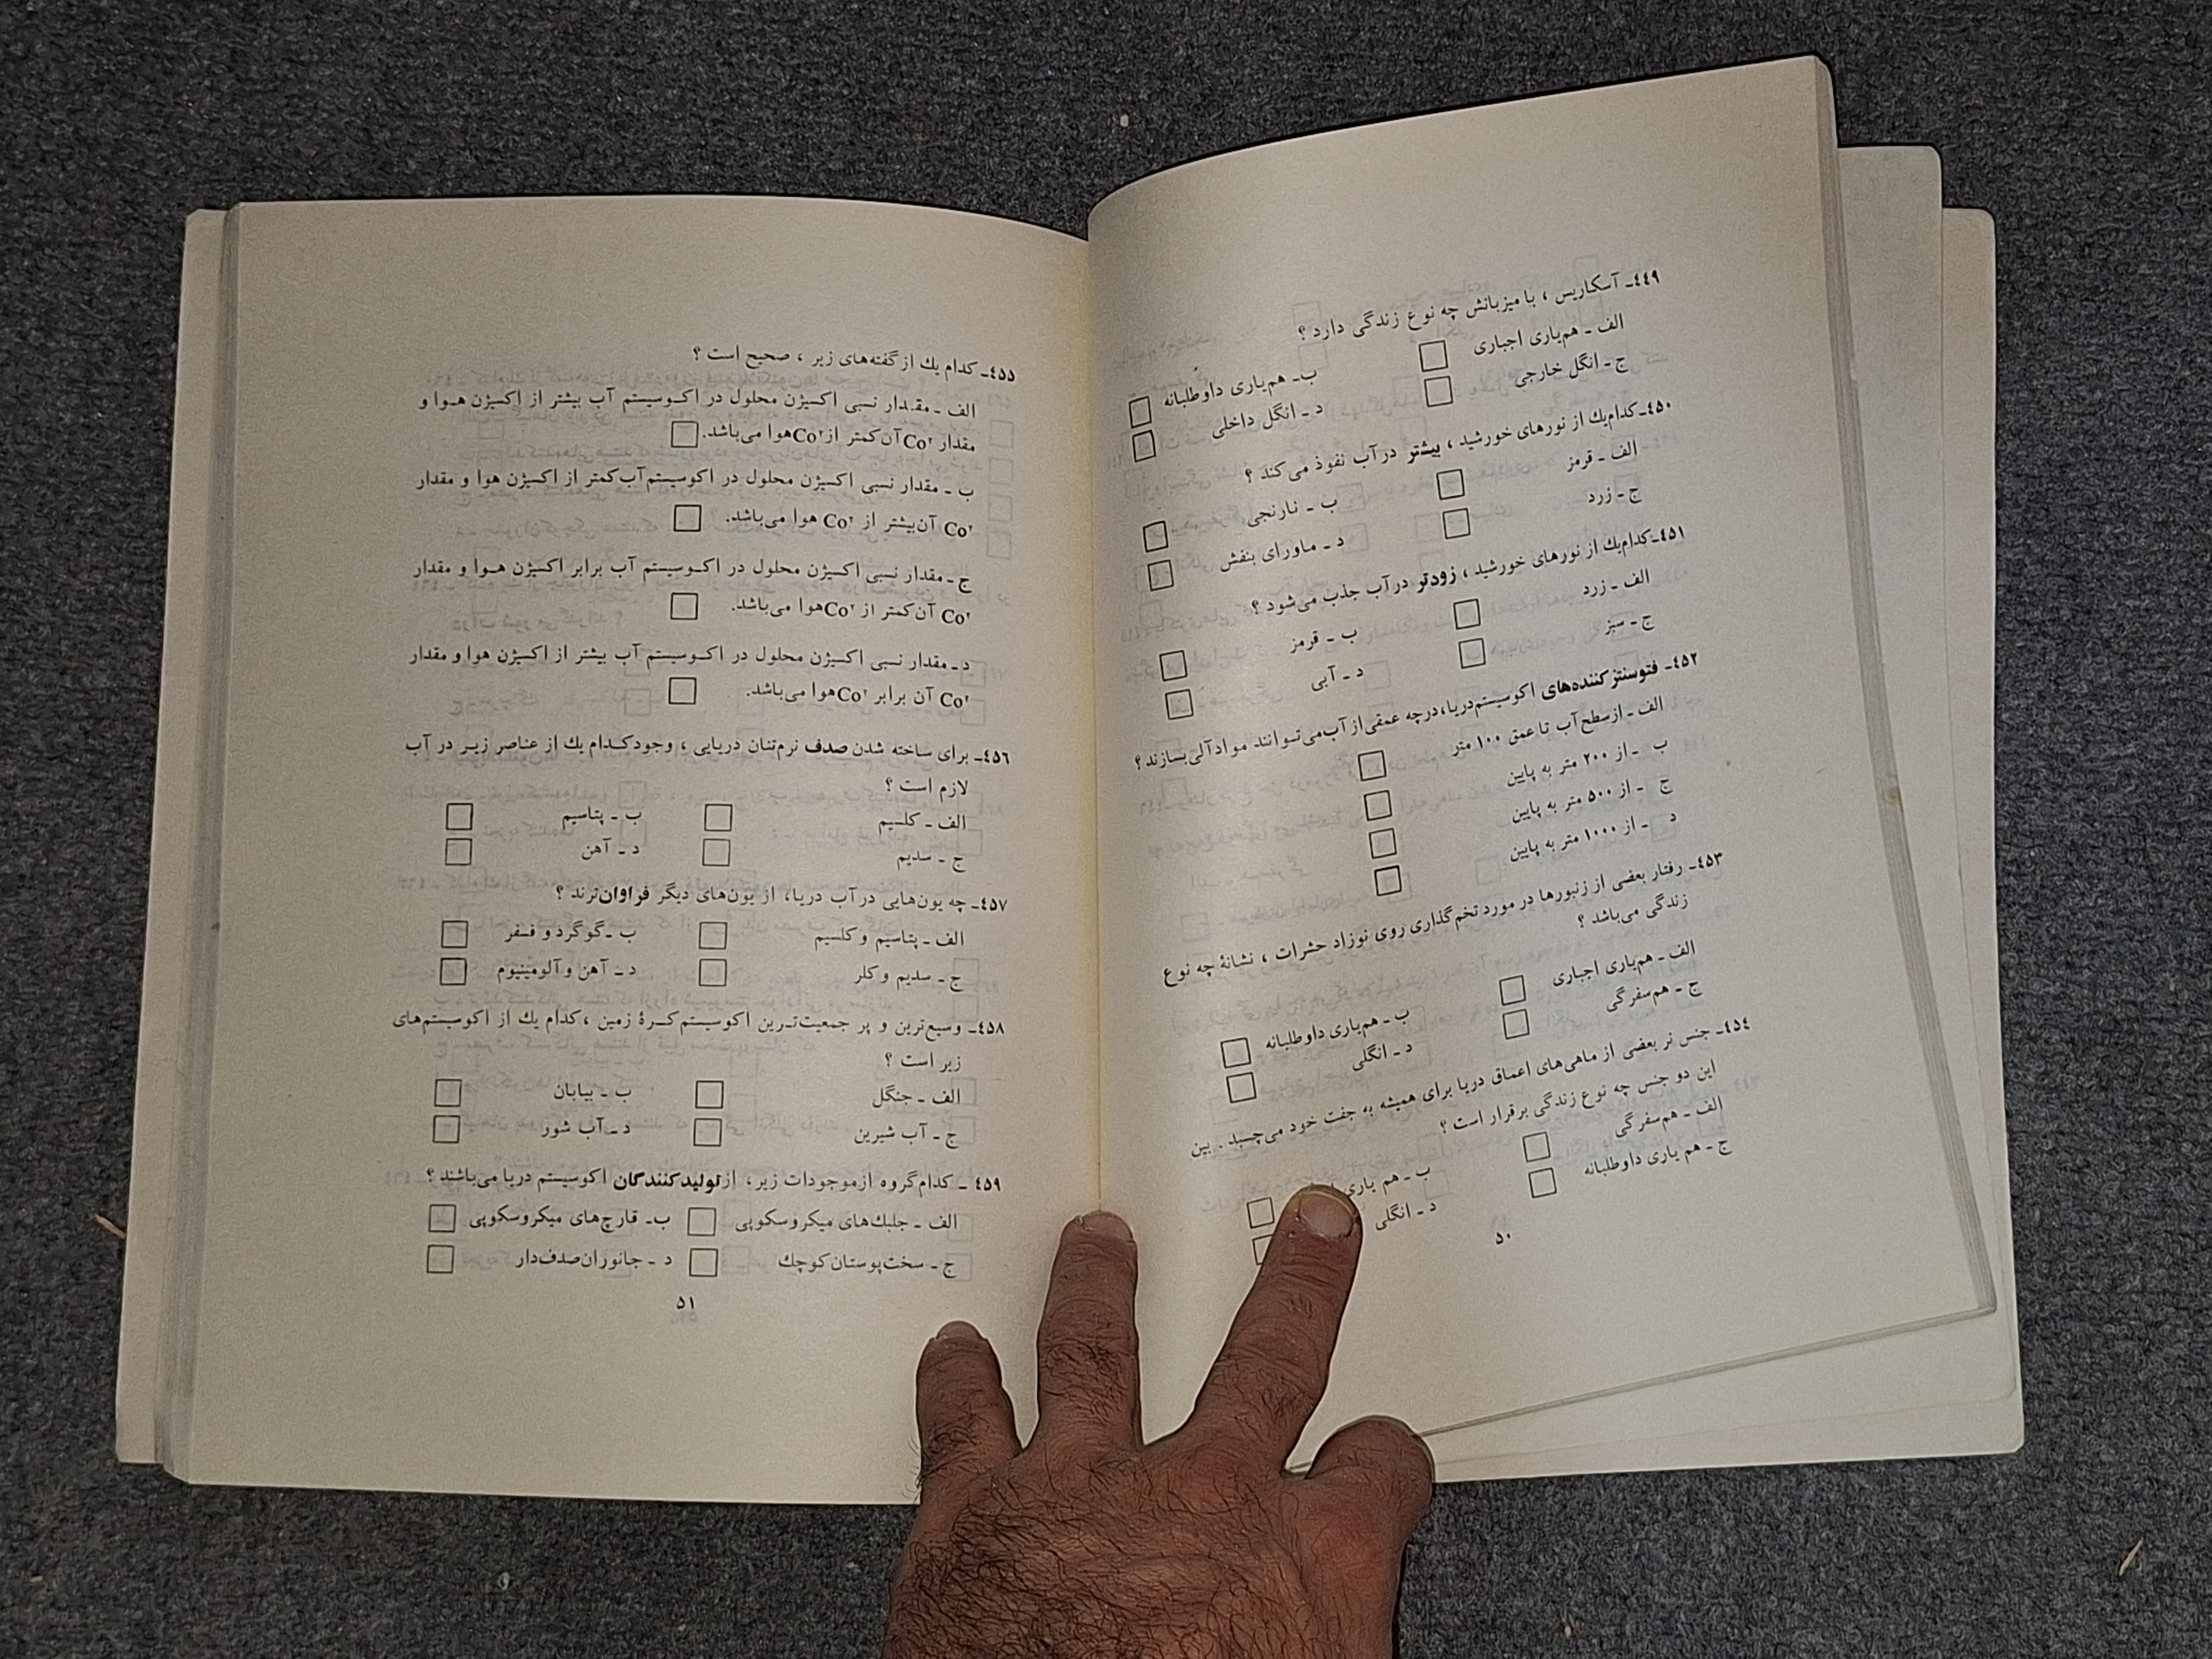 ٤٤٩ـ آسکاریس ، با میزبانش چه نوع زندگی دارد ؟
الف ـ هم‌یاری اجباری □ ب ـ هم‌یاری داوطلبانه □
ج ـ انگل خارجی □ د ـ انگل داخلی □
٤٥٠ـ کدام‌یك از نورهای خورشید ، بیشتر در آب نفوذ می‌کند ؟
الف ـ قرمز □ ب ـ نارنجی □
ج ـ زرد □ د ـ ماورای بنفش □
٤٥١ـ کدام‌یك از نورهای خورشید ، زودتر در آب جذب می‌شود ؟
الف ـ زرد □ ب ـ قرمز □
ج ـ سبز □ د ـ آبی □
٤٥٢ـ فتوسنتزکننده‌های اکوسیستم دریا، درچه عمقی از آب می‌توانند مواد آلی بسازند ؟
الف ـ از سطح آب تا عمق ۱۰۰ متر □
ب ـ از ۲۰۰ متر به پایین □
ج ـ از ۵۰۰ متر به پایین □
د ـ از ۱۰۰۰ متر به پایین □
٤٥٣ـ رفتار بعضی از زنبورها در مورد تخم‌گذاری روی نوزاد حشرات ، نشانهٔ چه نوع
زندگی می‌باشد ؟
الف ـ هم‌یاری اجباری □ ب ـ هم‌یاری داوطلبانه □
ج ـ هم‌سفرگی □ د ـ انگلی □
٤٥٤ـ جنس نر بعضی از ماهی‌های اعماق دریا برای همیشه به جفت خود می‌چسبد . بین
این دو جنس چه نوع زندگی برقرار است ؟
الف ـ هم‌سفرگی □ ب ـ هم یاری □
ج ـ هم یاری داوطلبانه □ د ـ انگلی □
۵۰
٤٥٥ـ کدام یك از گفته‌های زیر ، صحیح است ؟
الف ـ مقدار نسبی اکسیژن محلول در اکوسیستم آب بیشتر از اکسیژن هوا و
مقدار Co۲ آن کمتر از Co۲ هوا می‌باشد. □
ب ـ مقدار نسبی اکسیژن محلول در اکوسیستم آب کمتر از اکسیژن هوا و مقدار
Co۲ آن بیشتر از Co۲ هوا می‌باشد. □
ج ـ مقدار نسبی اکسیژن محلول در اکوسیستم آب برابر اکسیژن هوا و مقدار
Co۲ آن کمتر از Co۲ هوا می‌باشد. □
د ـ مقدار نسبی اکسیژن محلول در اکوسیستم آب بیشتر از اکسیژن هوا و مقدار
Co۲ آن برابر Co۲ هوا می‌باشد. □
٤٥٦ـ برای ساخته شدن صدف نرم‌تنان دریایی ، وجود کدام یك از عناصر زیر در آب
لازم است ؟
الف ـ کلسیم □ ب ـ پتاسیم □
ج ـ سدیم □ د ـ آهن □
٤٥٧ـ چه یون‌هایی در آب دریا، از یون‌های دیگر فراوان‌ترند ؟
الف ـ پتاسیم و کلسیم □ ب ـ گوگرد و فسفر □
ج ـ سدیم و کلر □ د ـ آهن و آلومینیوم □
٤٥٨ـ وسیع‌ترین و پر جمعیت‌ترین اکوسیستم کرهٔ زمین ، کدام یك از اکوسیستم‌های
زیر است ؟
الف ـ جنگل □ ب ـ بیابان □
ج ـ آب شیرین □ د ـ آب شور □
٤٥٩ ـ کدام گروه از موجودات زیر، از تولیدکنندگان اکوسیستم دریا می‌باشند ؟
الف ـ جلبك‌های میکروسکوپی □ ب ـ قارچ‌های میکروسکوپی □
ج ـ سخت‌پوستان کوچك □ د ـ جانوران صدف‌دار □
۵۱